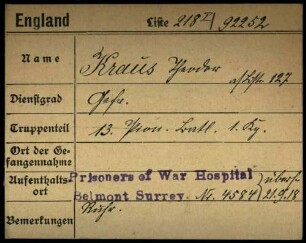 England Liste 218 I/92252
Name Kraus Theodor
a/Liste 127
Dienstgrad Gefr.
Truppenteil 13. Pion. Batl. 1. Kg.
Ort der Gefangennahme
Aufenthaltsort Prisoners of War Hospital
Belmont Surrey. Nr. 4584 überf. 21.9.18
Bemerkungen Ruhr.